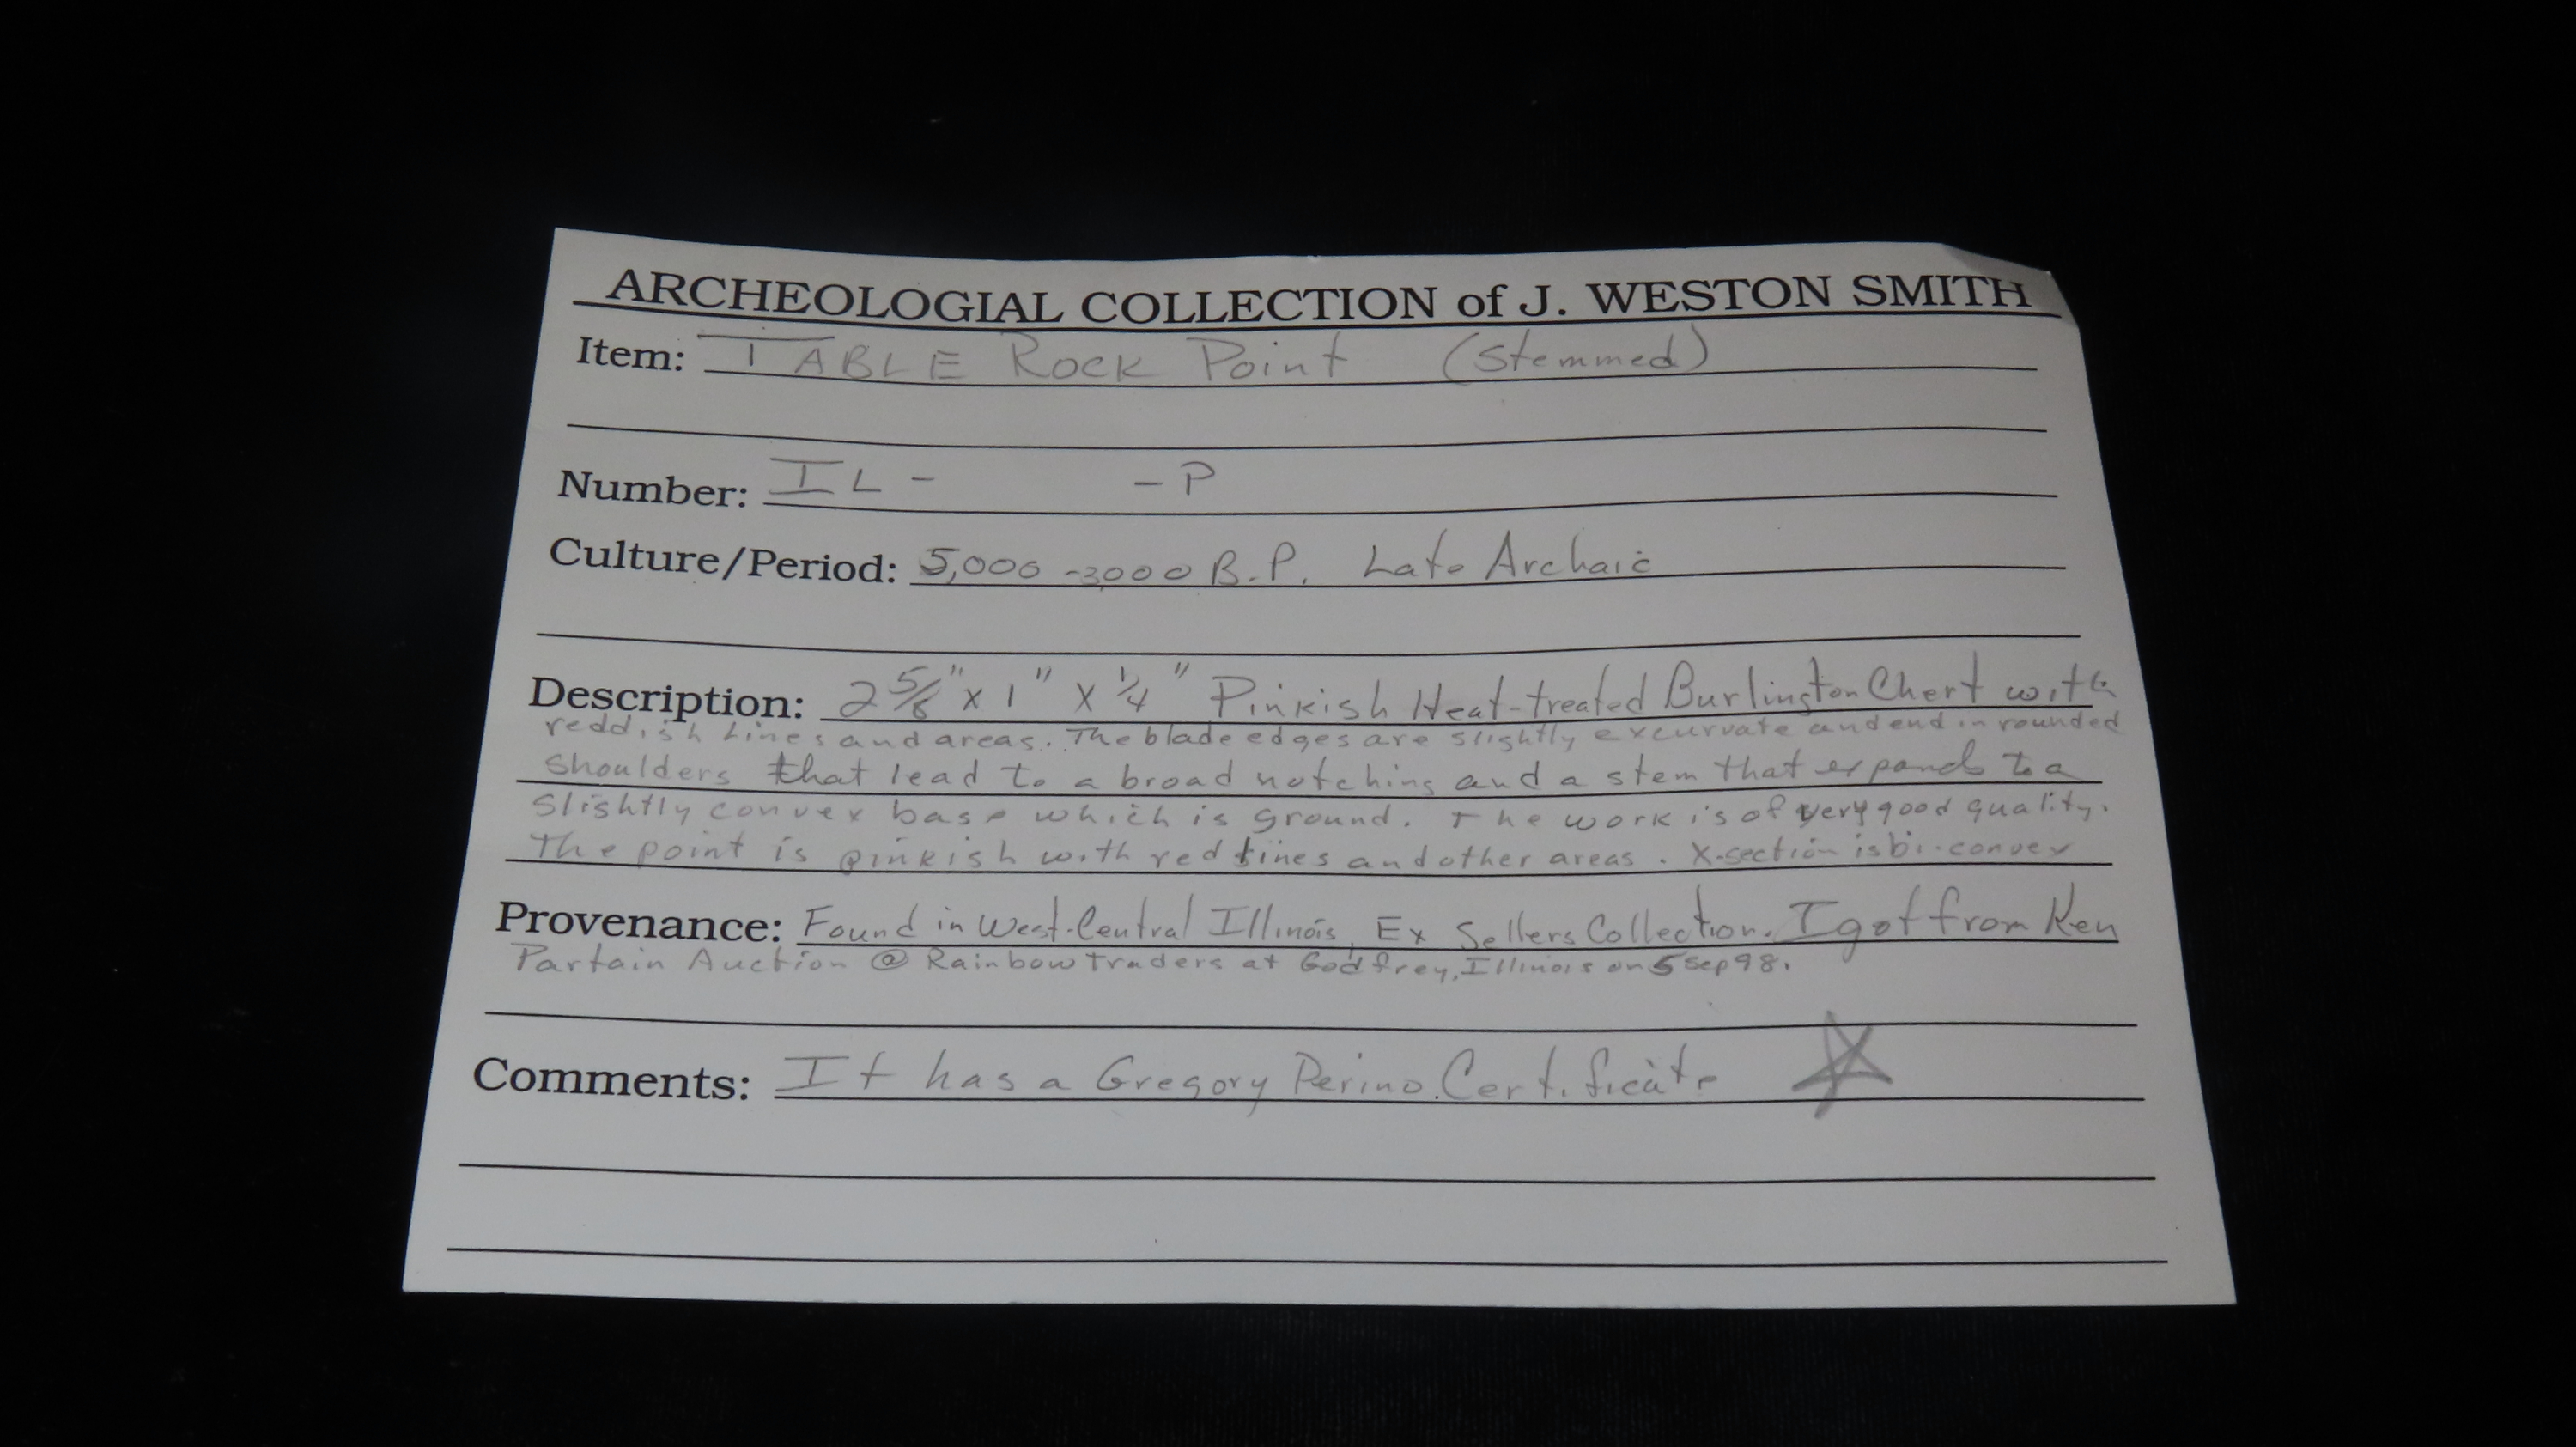 ARCHEOLOGIAL COLLECTION of J. WESTON SMITH
Item: TABLE ROCK Point (Stemmed)
Number: IL- -P
Culture/Period: 5,000-3,000 B.P. Late Archaic
Description: 2 5/8" X 1" X 1/4" Pinkish Heat-treated Burlington Chert with
reddish lines and areas. The blade edges are slightly excurvate and end in rounded
shoulders that lead to a broad notching and a stem that expands to a
slightly convex base which is ground. The work is of very good quality.
The point is pinkish with red lines and other areas. X-section is bi-convex
Provenance: Found in West-Central Illinois, Ex Sellers Collection. I got from Ken
Partain Auction @ Rainbow Traders at Godfrey, Illinois on 5 Sep 98.
Comments: It has a Gregory Perino Certificate